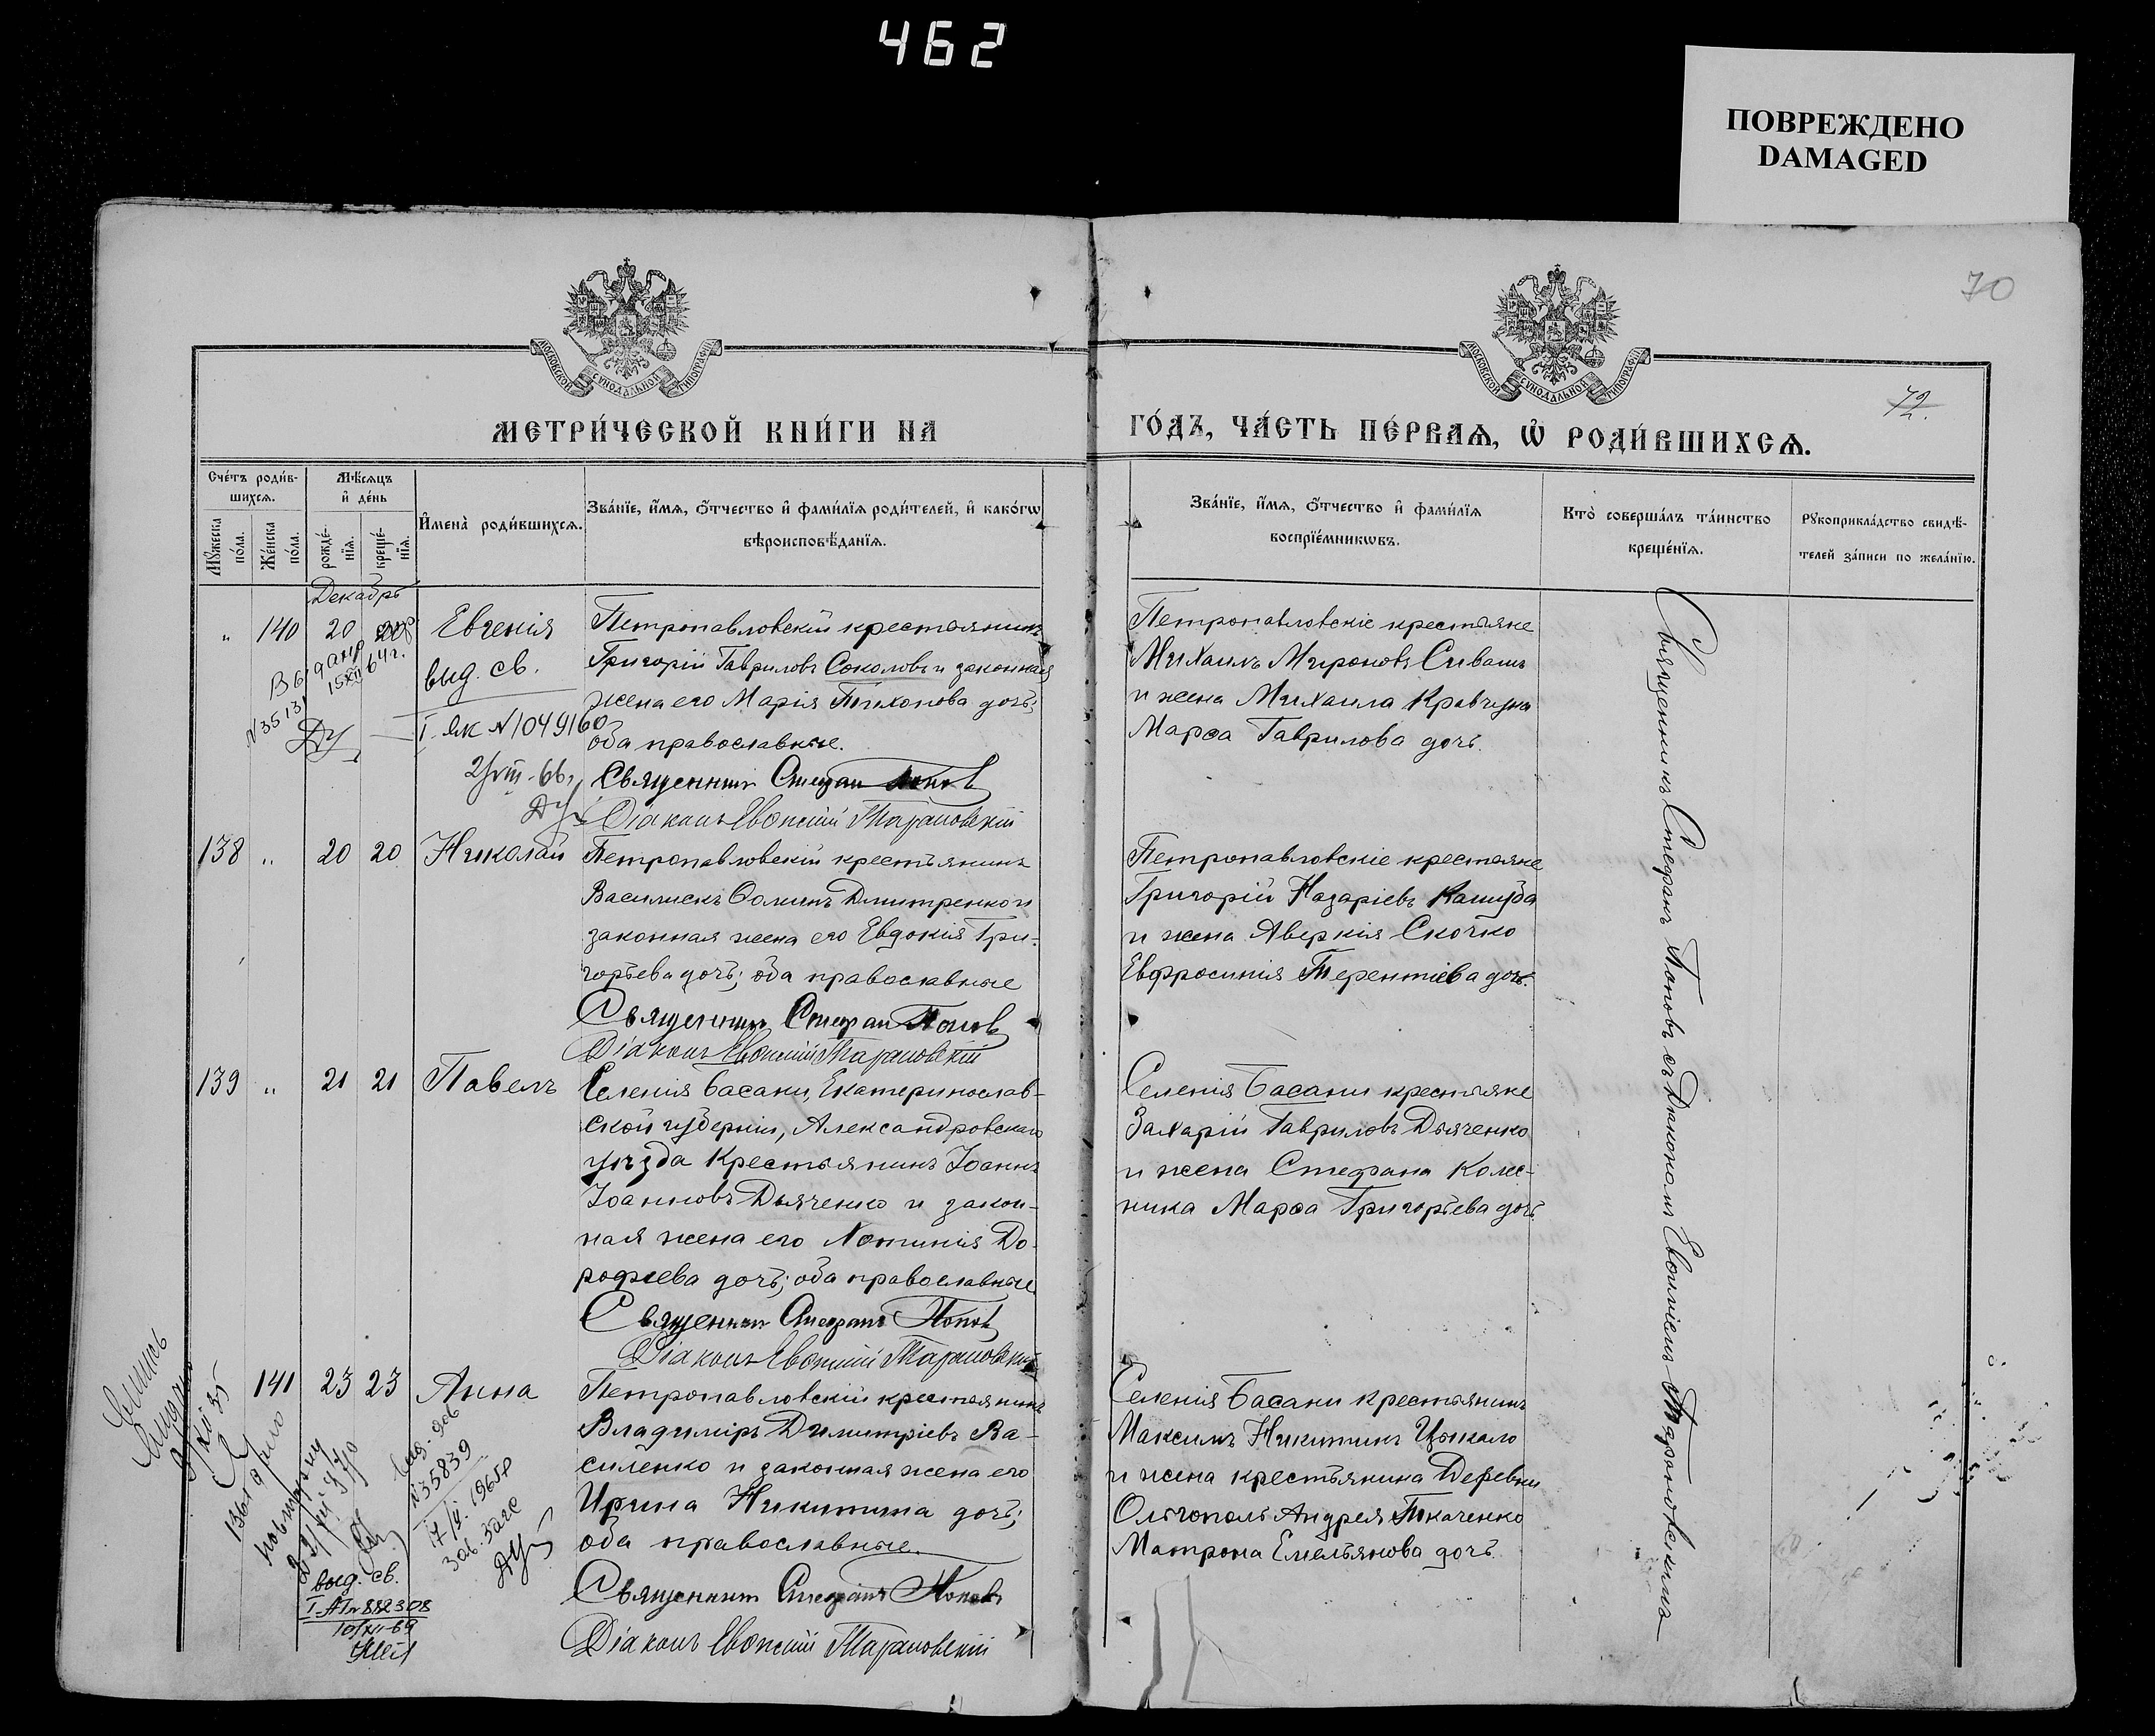 462
ПОВРЕЖДЕНО
DAMAGED
70
МОСКОВСКОЙ СУНОДАЛЬНОЙ ТИПОГРАФІИ
МОСКОВСКОЙ СУНОДАЛЬНОЙ ТИПОГРАФІИ
72.
МЕТРИ́ЧЕСКОЙ КНИ́ГИ НА
ГО́ДЪ, ЧА́СТЬ ПЕ́РВАѦ, Ѡ҆ РОДИ́ВШИХСѦ.
Счётъ роди́в-
шихсѧ.
Мꙋ́жеска
по́ла.
Же́нска
по́ла.
Мѣ́сѧцъ
и҆ де́нь
рожде́-
нїѧ.
креще́-
нїѧ.
И҆мена̀ роди́вшихсѧ.
Зва́нїе, и҆́мѧ, ѻ҆́тчество и҆ фами́лїѧ роди́телей, и҆ како́гѡ
вѣроисповѣ́данїѧ.
Зва́нїе, и҆́мѧ, ѻ҆́тчество и҆ фами́лїѧ
воспрїе́мникѡвъ.
Кто̀ соверша́лъ та́инство
креще́нїѧ.
Рꙋкоприкла́дство свидѣ́-
телей за́писи по жела́нїю.
Декабрь
„ 140 20 Евгенія
Петропавловскій крестьянинъ
Григорій Гавриловъ Соколовъ и законная
жена его Марія Тихонова дочь;
оба православные.
Священникъ Стефан Попов
Діаконъ Евѳимій Тарановскій
выд. св.
I. як N 1049160
2/VIII-66
N 35131
Петропавловскіе крестьяне
Михаилъ Мироновъ Сивашъ
и жена Михаила Кравчуна
Марѳа Гаврилова дочь.
138 „ 20 20 Николай
Петропавловскій крестьянинъ
Василискъ Ѳоминъ Дмитренко и
законная жена его Евдокія Гри-
горьева дочь; оба православные
Священникъ Стефан Попов
Діаконъ Евѳимій Тарановскій
Петропавловскіе крестьяне
Григорій Назаріевъ Кашуба
и жена Аверкія Скочко
Евфросинія Терентіева дочь.
139 „ 21 21 Павелъ
Селенія Басани, Екатеринослав-
ской губерніи, Александровскаго
уѣзда крестьянинъ Іоаннъ
Іоанновъ Дьяченко и закон-
ная жена его Ѳотинія До-
рофеева дочь; оба православные
Священникъ Стефанъ Попов
Діаконъ Евѳимій Тарановскій
Селенія Басани крестьяне
Захарій Гавриловъ Дьяченко
и жена Стефана Колес-
ника Марѳа Григорьева дочь
141 23 23 Анна
Петропавловскій крестьянинъ
Владиміръ Димитріевъ Ва-
силенко и законная жена его
Ирина Никитина дочь;
оба православные.
Священникъ Стефанъ Поповъ
Діаконъ Евѳимій Тарановскій
Селенія Басани крестьянинъ
Максимъ Никитинъ Цыкало
и жена крестьянина Деревни
Ольгополь Андрея Ткаченко
Матрона Емельянова дочь.
N 35839
выд. св.
I-АП N 882308
10/XII-69
Священникъ Стефанъ Поповъ съ Діакономъ Евѳиміемъ Тарановскимъ